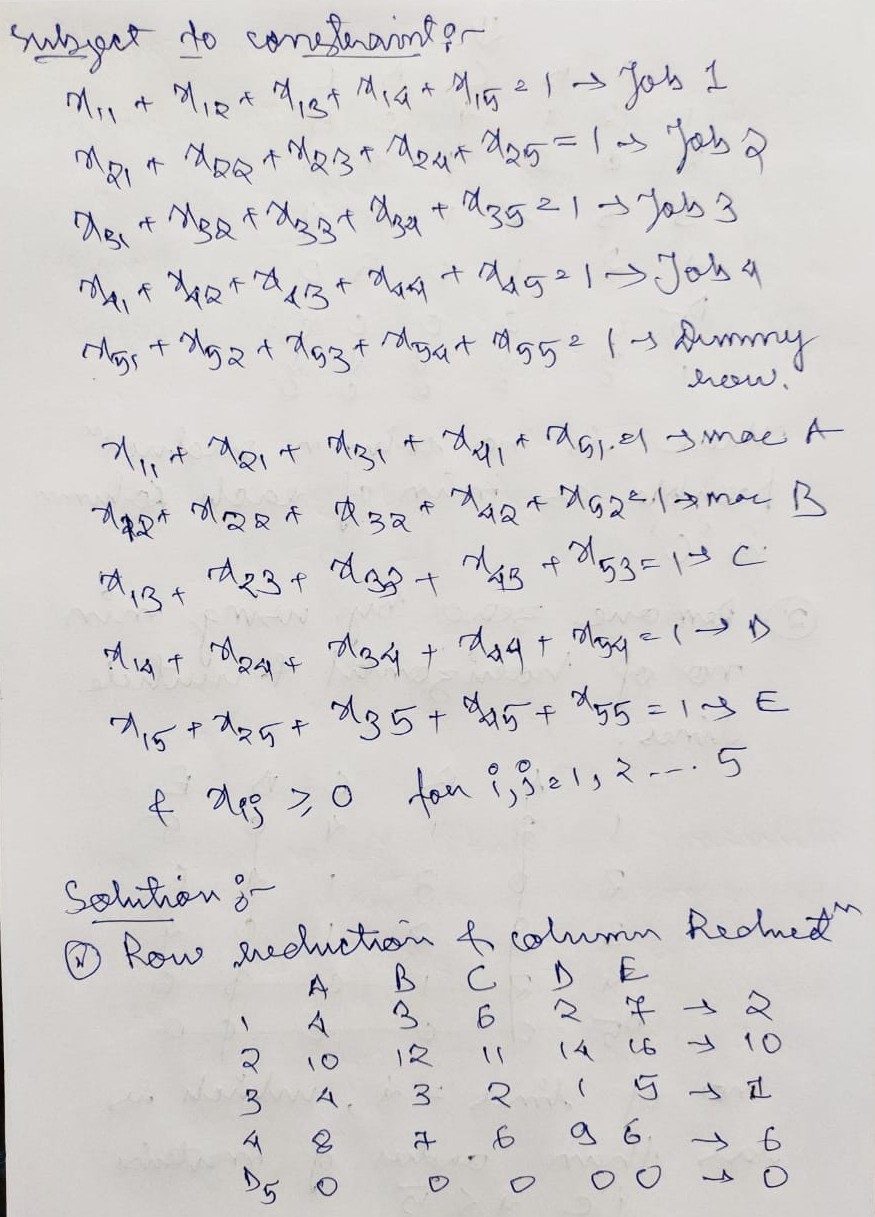 Subject to constraint :-
x11 + x12 + x13 + x14 + x15 = 1 → Job 1
x21 + x22 + x23 + x24 + x25 = 1 → Job 2
x31 + x32 + x33 + x34 + x35 = 1 → Job 3
x41 + x42 + x43 + x44 + x45 = 1 → Job 4
x51 + x52 + x53 + x54 + x55 = 1 → Dummy
row.
x11 + x21 + x31 + x41 + x51 = 1 → mac A
x12 + x22 + x32 + x42 + x52 = 1 → mac B
x13 + x23 + x33 + x43 + x53 = 1 → C
x14 + x24 + x34 + x44 + x54 = 1 → D
x15 + x25 + x35 + x45 + x55 = 1 → E
& xij ≥ 0 for i, j = 1, 2 ---- 5
Solution :-
Row reduction & column Reductn
A B C D E
1 4 3 6 2 7 → 2
2 10 12 11 14 16 → 10
3 4 3 2 1 5 → 1
4 8 7 6 9 6 → 6
D5 0 0 0 0 0 → 0